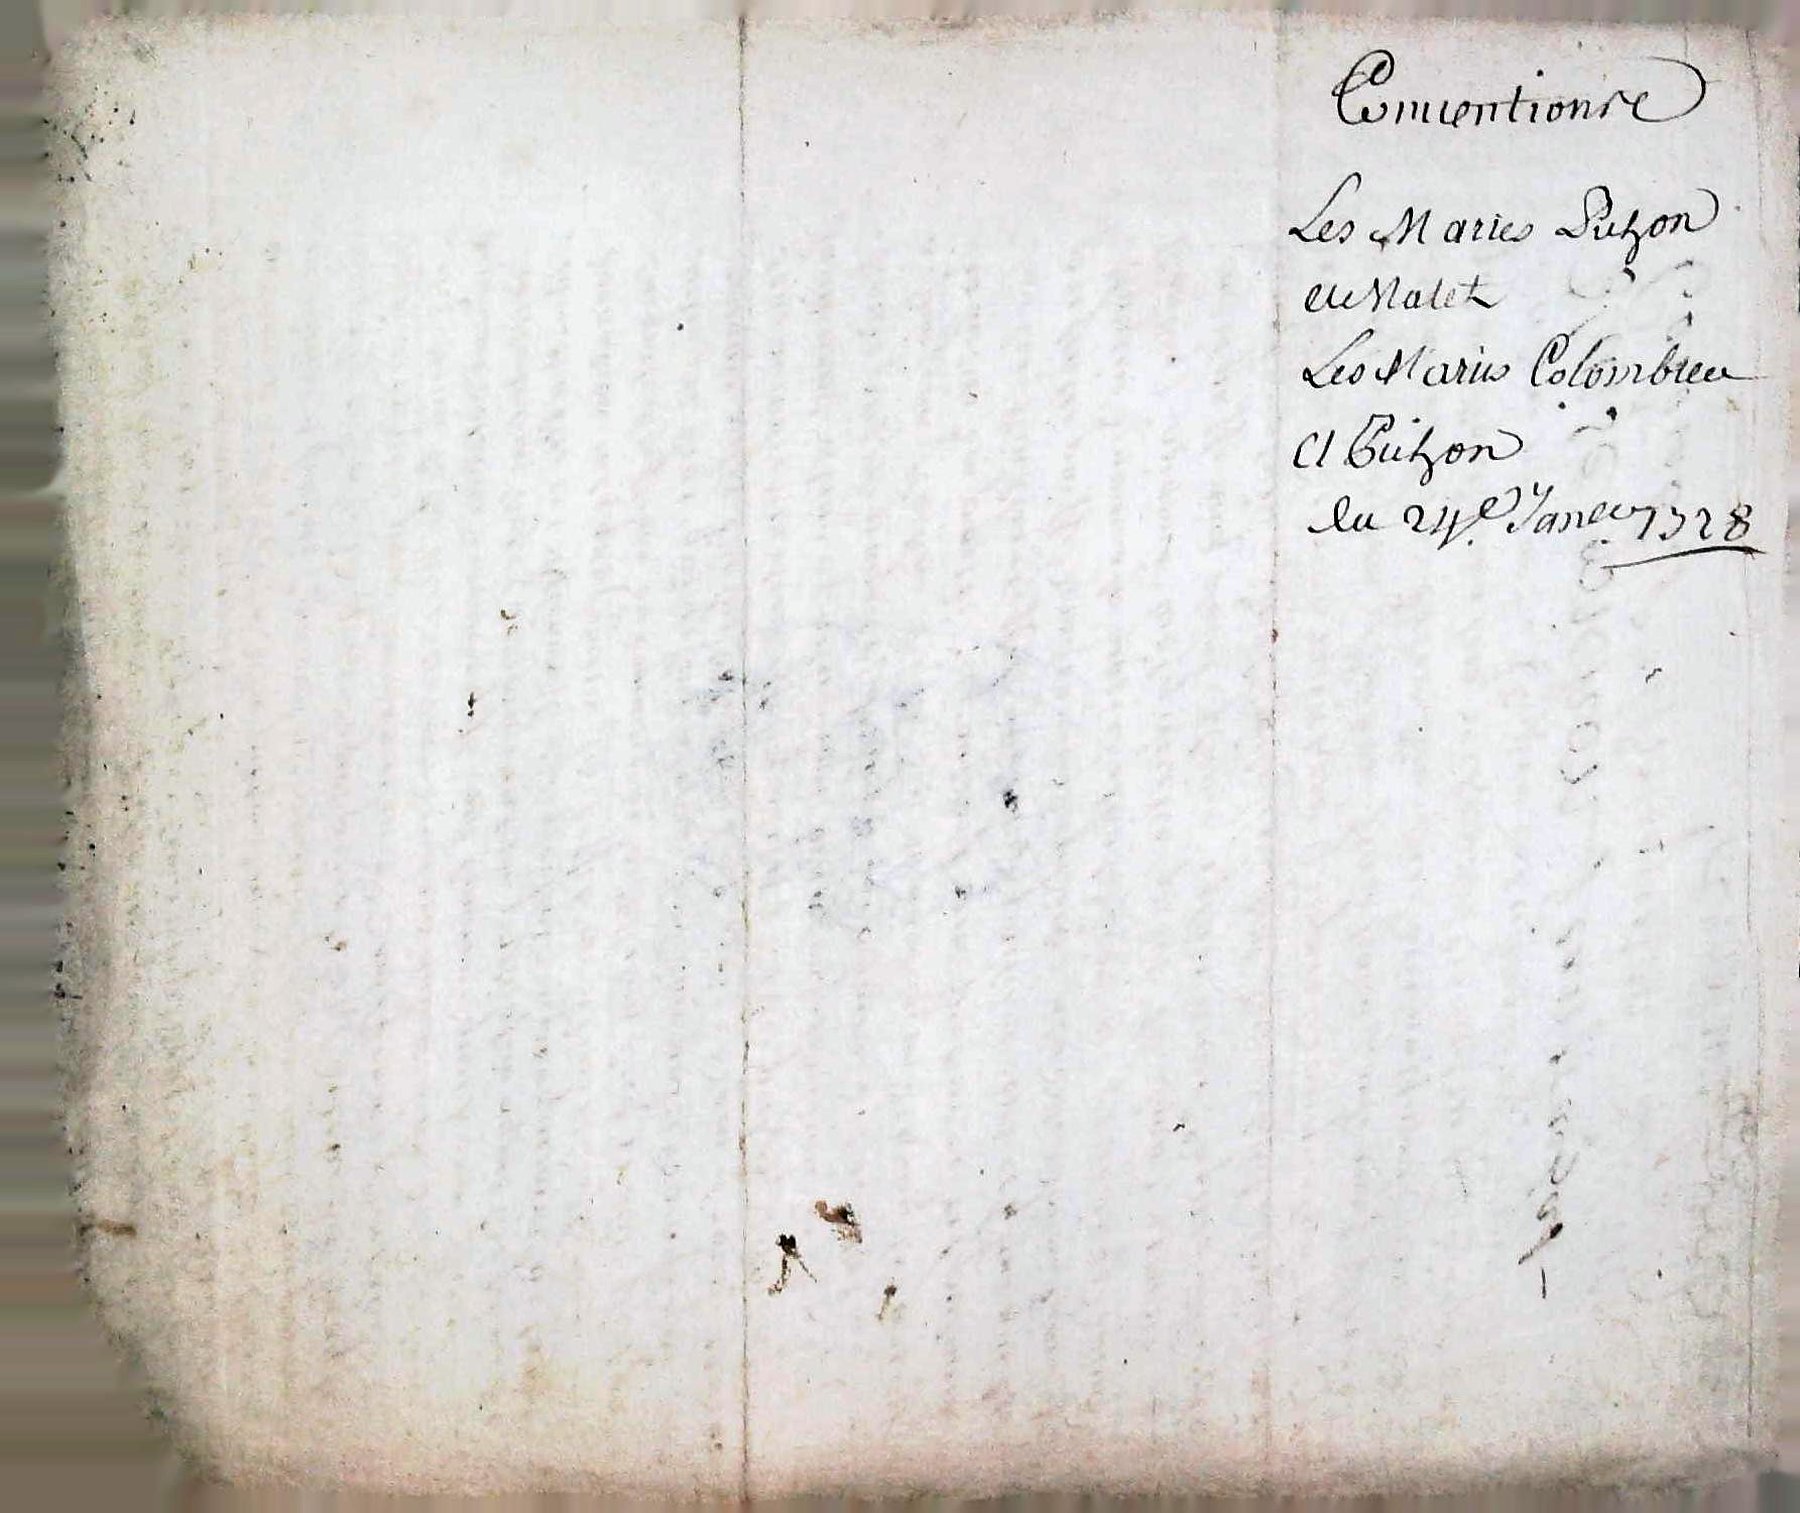 Conventions
Les Maries Puhzon
et Malet
Les Maries Colombieu
et Puhzon
du 24e. Janv 1728